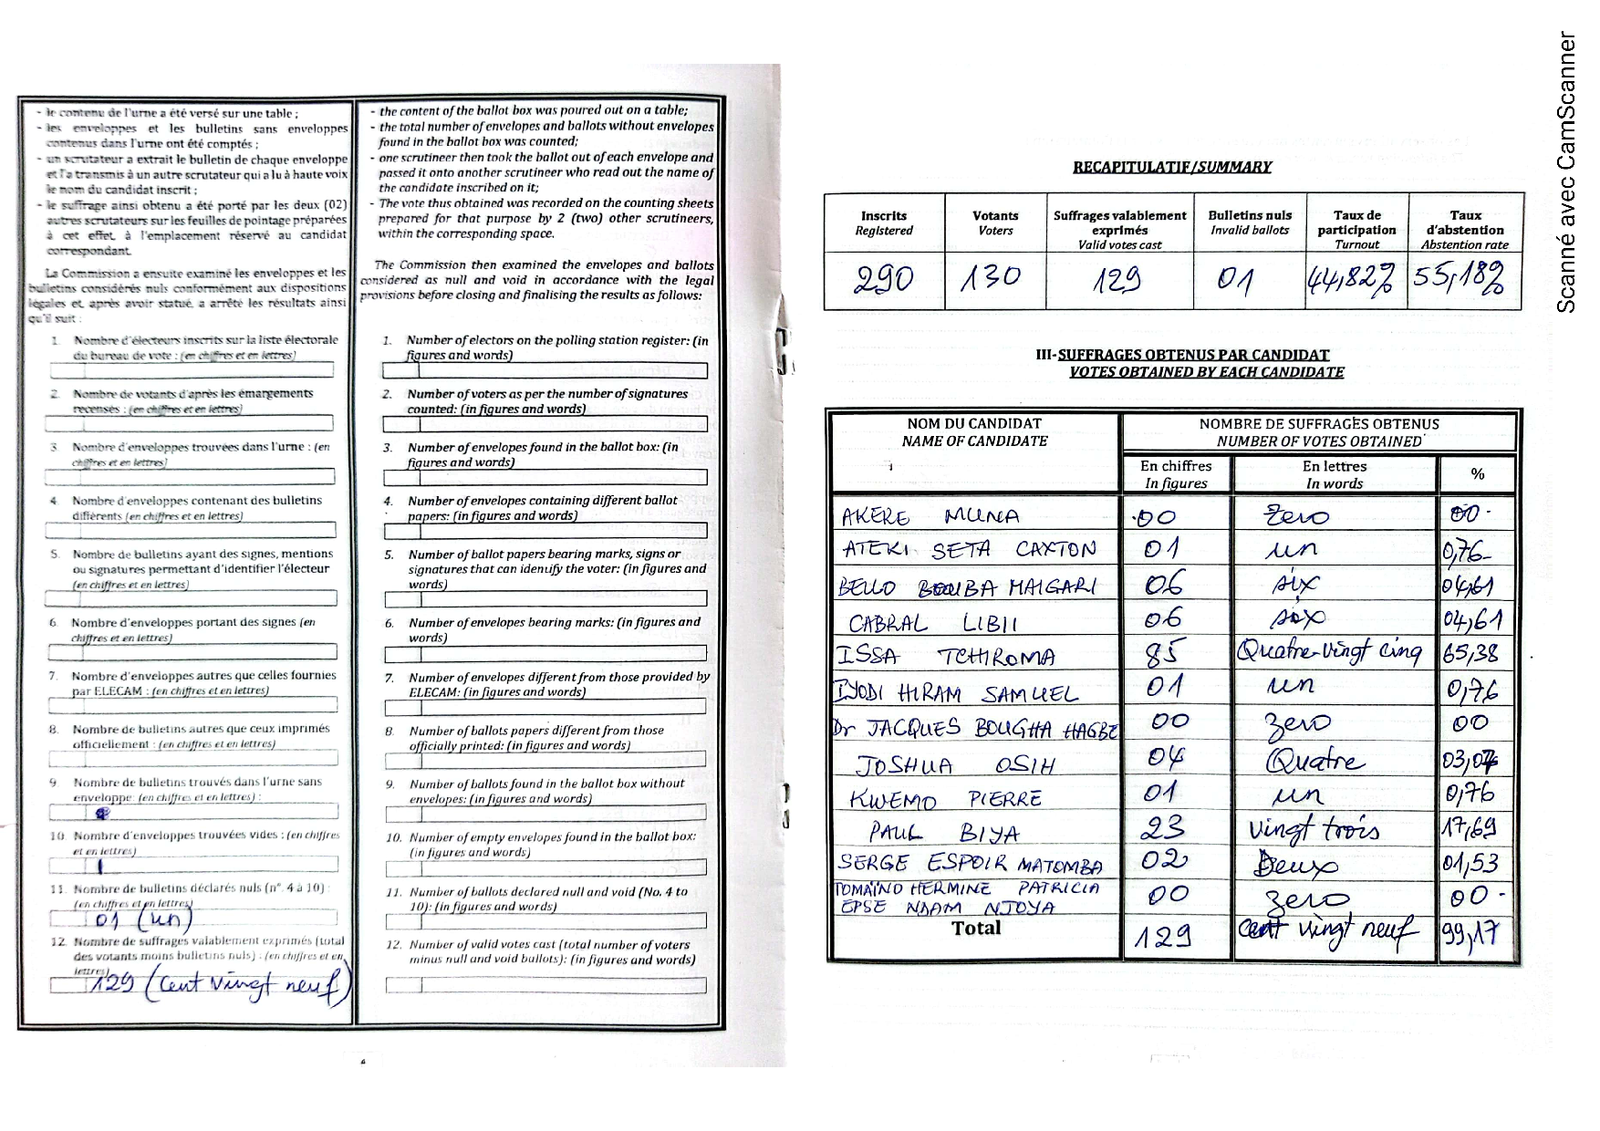 - le contenu de l'urne a été versé sur une table ;
- les enveloppes et les bulletins sans enveloppes
contenus dans l'urne ont été comptés ;
- un scrutateur a extrait le bulletin de chaque enveloppe
et l'a transmis à un autre scrutateur qui a lu à haute voix
le nom du candidat inscrit ;
- le suffrage ainsi obtenu a été porté par les deux (02)
autres scrutateurs sur les feuilles de pointage préparées
à cet effet, à l'emplacement réservé au candidat
correspondant.
La Commission a ensuite examiné les enveloppes et les
bulletins considérés nuls conformément aux dispositions
légales et, après avoir statué, a arrêté les résultats ainsi
qu'il suit :
1. Nombre d'électeurs inscrits sur la liste électorale
du bureau de vote : (en chiffres et en lettres)
2. Nombre de votants d'après les émargements
recensés : (en chiffres et en lettres)
3. Nombre d'enveloppes trouvées dans l'urne : (en
chiffres et en lettres)
4. Nombre d'enveloppes contenant des bulletins
différents (en chiffres et en lettres)
5. Nombre de bulletins ayant des signes, mentions
ou signatures permettant d'identifier l'électeur
(en chiffres et en lettres)
6. Nombre d'enveloppes portant des signes (en
chiffres et en lettres)
7. Nombre d'enveloppes autres que celles fournies
par ELECAM : (en chiffres et en lettres)
8. Nombre de bulletins autres que ceux imprimés
officiellement : (en chiffres et en lettres)
9. Nombre de bulletins trouvés dans l'urne sans
enveloppe (en chiffres et en lettres) :
10. Nombre d'enveloppes trouvées vides : (en chiffres
et en lettres)
1
11. Nombre de bulletins déclarés nuls (n° 4 à 10) :
(en chiffres et en lettres)
01 (un)
12. Nombre de suffrages valablement exprimés (total
des votants moins bulletins nuls) : (en chiffres et en
lettres)
129 (cent vingt neuf)
- the content of the ballot box was poured out on a table;
- the total number of envelopes and ballots without envelopes
found in the ballot box was counted;
- one scrutineer then took the ballot out of each envelope and
passed it onto another scrutineer who read out the name of
the candidate inscribed on it;
- The vote thus obtained was recorded on the counting sheets
prepared for that purpose by 2 (two) other scrutineers,
within the corresponding space.
The Commission then examined the envelopes and ballots
considered as null and void in accordance with the legal
provisions before closing and finalising the results as follows:
1. Number of electors on the polling station register: (in
figures and words)
2. Number of voters as per the number of signatures
counted: (in figures and words)
3. Number of envelopes found in the ballot box: (in
figures and words)
4. Number of envelopes containing different ballot
papers: (in figures and words)
5. Number of ballot papers bearing marks, signs or
signatures that can identify the voter: (in figures and
words)
6. Number of envelopes bearing marks: (in figures and
words)
7. Number of envelopes different from those provided by
ELECAM: (in figures and words)
8. Number of ballots papers different from those
officially printed: (in figures and words)
9. Number of ballots found in the ballot box without
envelopes: (in figures and words)
10. Number of empty envelopes found in the ballot box:
(in figures and words)
11. Number of ballots declared null and void (No. 4 to
10): (in figures and words)
12. Number of valid votes cast (total number of voters
minus null and void ballots): (in figures and words)
RECAPITULATIF/SUMMARY
Inscrits Votants Suffrages valablement Bulletins nuls Taux de Taux
Registered Voters exprimés Invalid ballots participation d'abstention
Valid votes cast Turnout Abstention rate
290 130 129 01 44,82% 55,18%
III- SUFFRAGES OBTENUS PAR CANDIDAT
VOTES OBTAINED BY EACH CANDIDATE
NOM DU CANDIDAT NOMBRE DE SUFFRAGES OBTENUS
NAME OF CANDIDATE NUMBER OF VOTES OBTAINED
En chiffres En lettres %
In figures In words
AKERE MUNA 00 Zero 00
ATEKI SETA CAXTON 01 un 0,76
BELLO BOUBA MAIGARI 06 six 04,61
CABRAL LIBII 06 six 04,61
ISSA TCHIROMA 85 Quatre-vingt cinq 65,38
IYODI HIRAM SAMUEL 01 un 0,76
Dr JACQUES BOUGHA HAGBE 00 zero 00
JOSHUA OSIH 04 Quatre 03,07
KWEMO PIERRE 01 un 0,76
PAUL BIYA 23 vingt trois 17,69
SERGE ESPOIR MATOMBA 02 Deux 01,53
TOMAÏNO HERMINE PATRICIA
EPSE NDAM NJOYA 00 zero 00
Total 129 cent vingt neuf 99,17
Scanné avec CamScanner